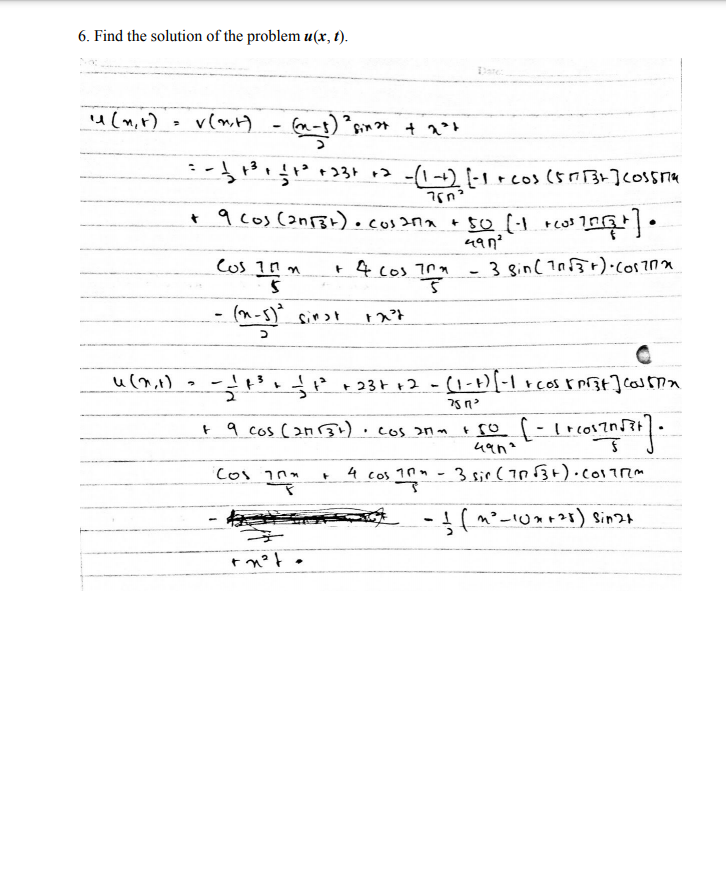 6. Find the solution of the problem u(x, t).
Date:
u(x,t) = v(x,t) - (x-5)²/2 sin2t + x²t
= -1/2 t³ + 1/2 t² + 23t + 2 - (1-t)/75π² [-1 + cos(5π√3t]cos5πx
+ 9 cos(2π√3t) . cos2πx + 50/49π² [-1 + cos 7π√3t/5] .
cos 7πx/5 + 4 cos 7πx/5 - 3 sin(7π√3t).cos7πx
- (x-5)²/2 sin2t + x²t
u(x,t) = -1/2 t³ + 1/2 t² + 23t + 2 - (1-t)/75π² [-1 + cos5π√3t]cos5πx
+ 9 cos(2π√3t) . cos2πx + 50/49π² [-1 + cos7π√3t/5] .
cos 7πx/5 + 4 cos 7πx/5 - 3 sin(7π√3t).cos7πx
- 1/2 (x²-10x+25) sin2t
+ x²t .